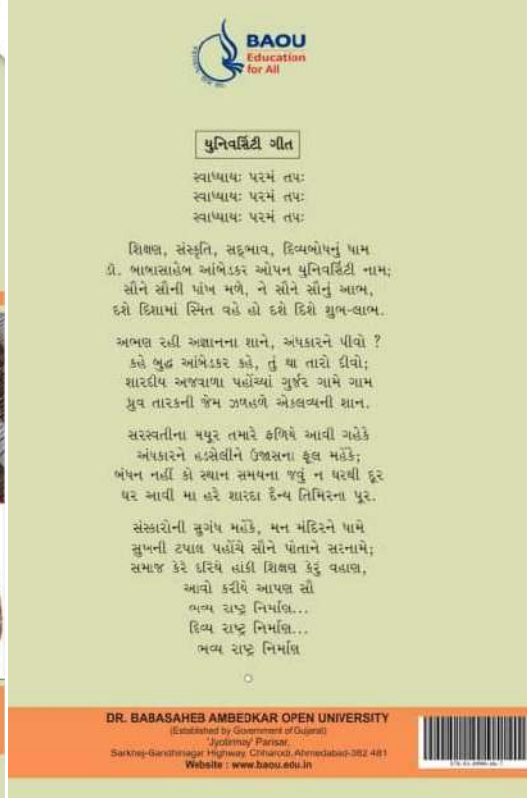 BAOU
Education
for All
યુનિવર્સિટી ગીત
સ્વાધ્યાયઃ પરમં તપઃ
સ્વાધ્યાયઃ પરમં તપઃ
સ્વાધ્યાયઃ પરમં તપઃ
શિક્ષણ, સંસ્કૃતિ, સદ્ભાવ, દિવ્યબોધનું ધામ
ડૉ. બાબાસાહેબ આંબેડકર ઓપન યુનિવર્સિટી નામ;
સૌને સૌની પાંખ મળે, ને સૌને સૌનું આભ,
દશે દિશામાં સ્મિત વહે હો દશે દિશે શુભ-લાભ.
અભણ રહી અજ્ઞાનના શાને, અંધકારને પીવો ?
કહે બુદ્ધ આંબેડકર કહે, તું થા તારો દીવો;
શારદીય અજવાળા પહોંચ્યાં ગુર્જર ગામે ગામ
ધ્રુવ તારકની જેમ ઝળહળે એકલવ્યની શાન.
સરસ્વતીના મયૂર તમારે ફળિયે આવી ગહેકે
અંધકારને હડસેલીને ઉજાસના ફૂલ મહેંકે;
બંધન નહીં કો સ્થાન સમયના જવું ન ઘરથી દૂર
ઘર આવી મા હરે શારદા દૈન્ય તિમિરના પૂર.
સંસ્કારોની સુગંધ મહેંકે, મન મંદિરને ધામે
સુખની ટપાલ પહોંચે સૌને પોતાને સરનામે;
સમાજ કેરે દરિયે હાંકી શિક્ષણ કેરું વહાણ,
આવો કરીયે આપણ સૌ
ભવ્ય રાષ્ટ્ર નિર્માણ...
દિવ્ય રાષ્ટ્ર નિર્માણ...
ભવ્ય રાષ્ટ્ર નિર્માણ
DR. BABASAHEB AMBEDKAR OPEN UNIVERSITY
(Established by Government of Gujarat)
'Jyotirmay' Parisar,
Sarkhej-Gandhinagar Highway, Chharodi, Ahmedabad-382 481
Website : www.baou.edu.in